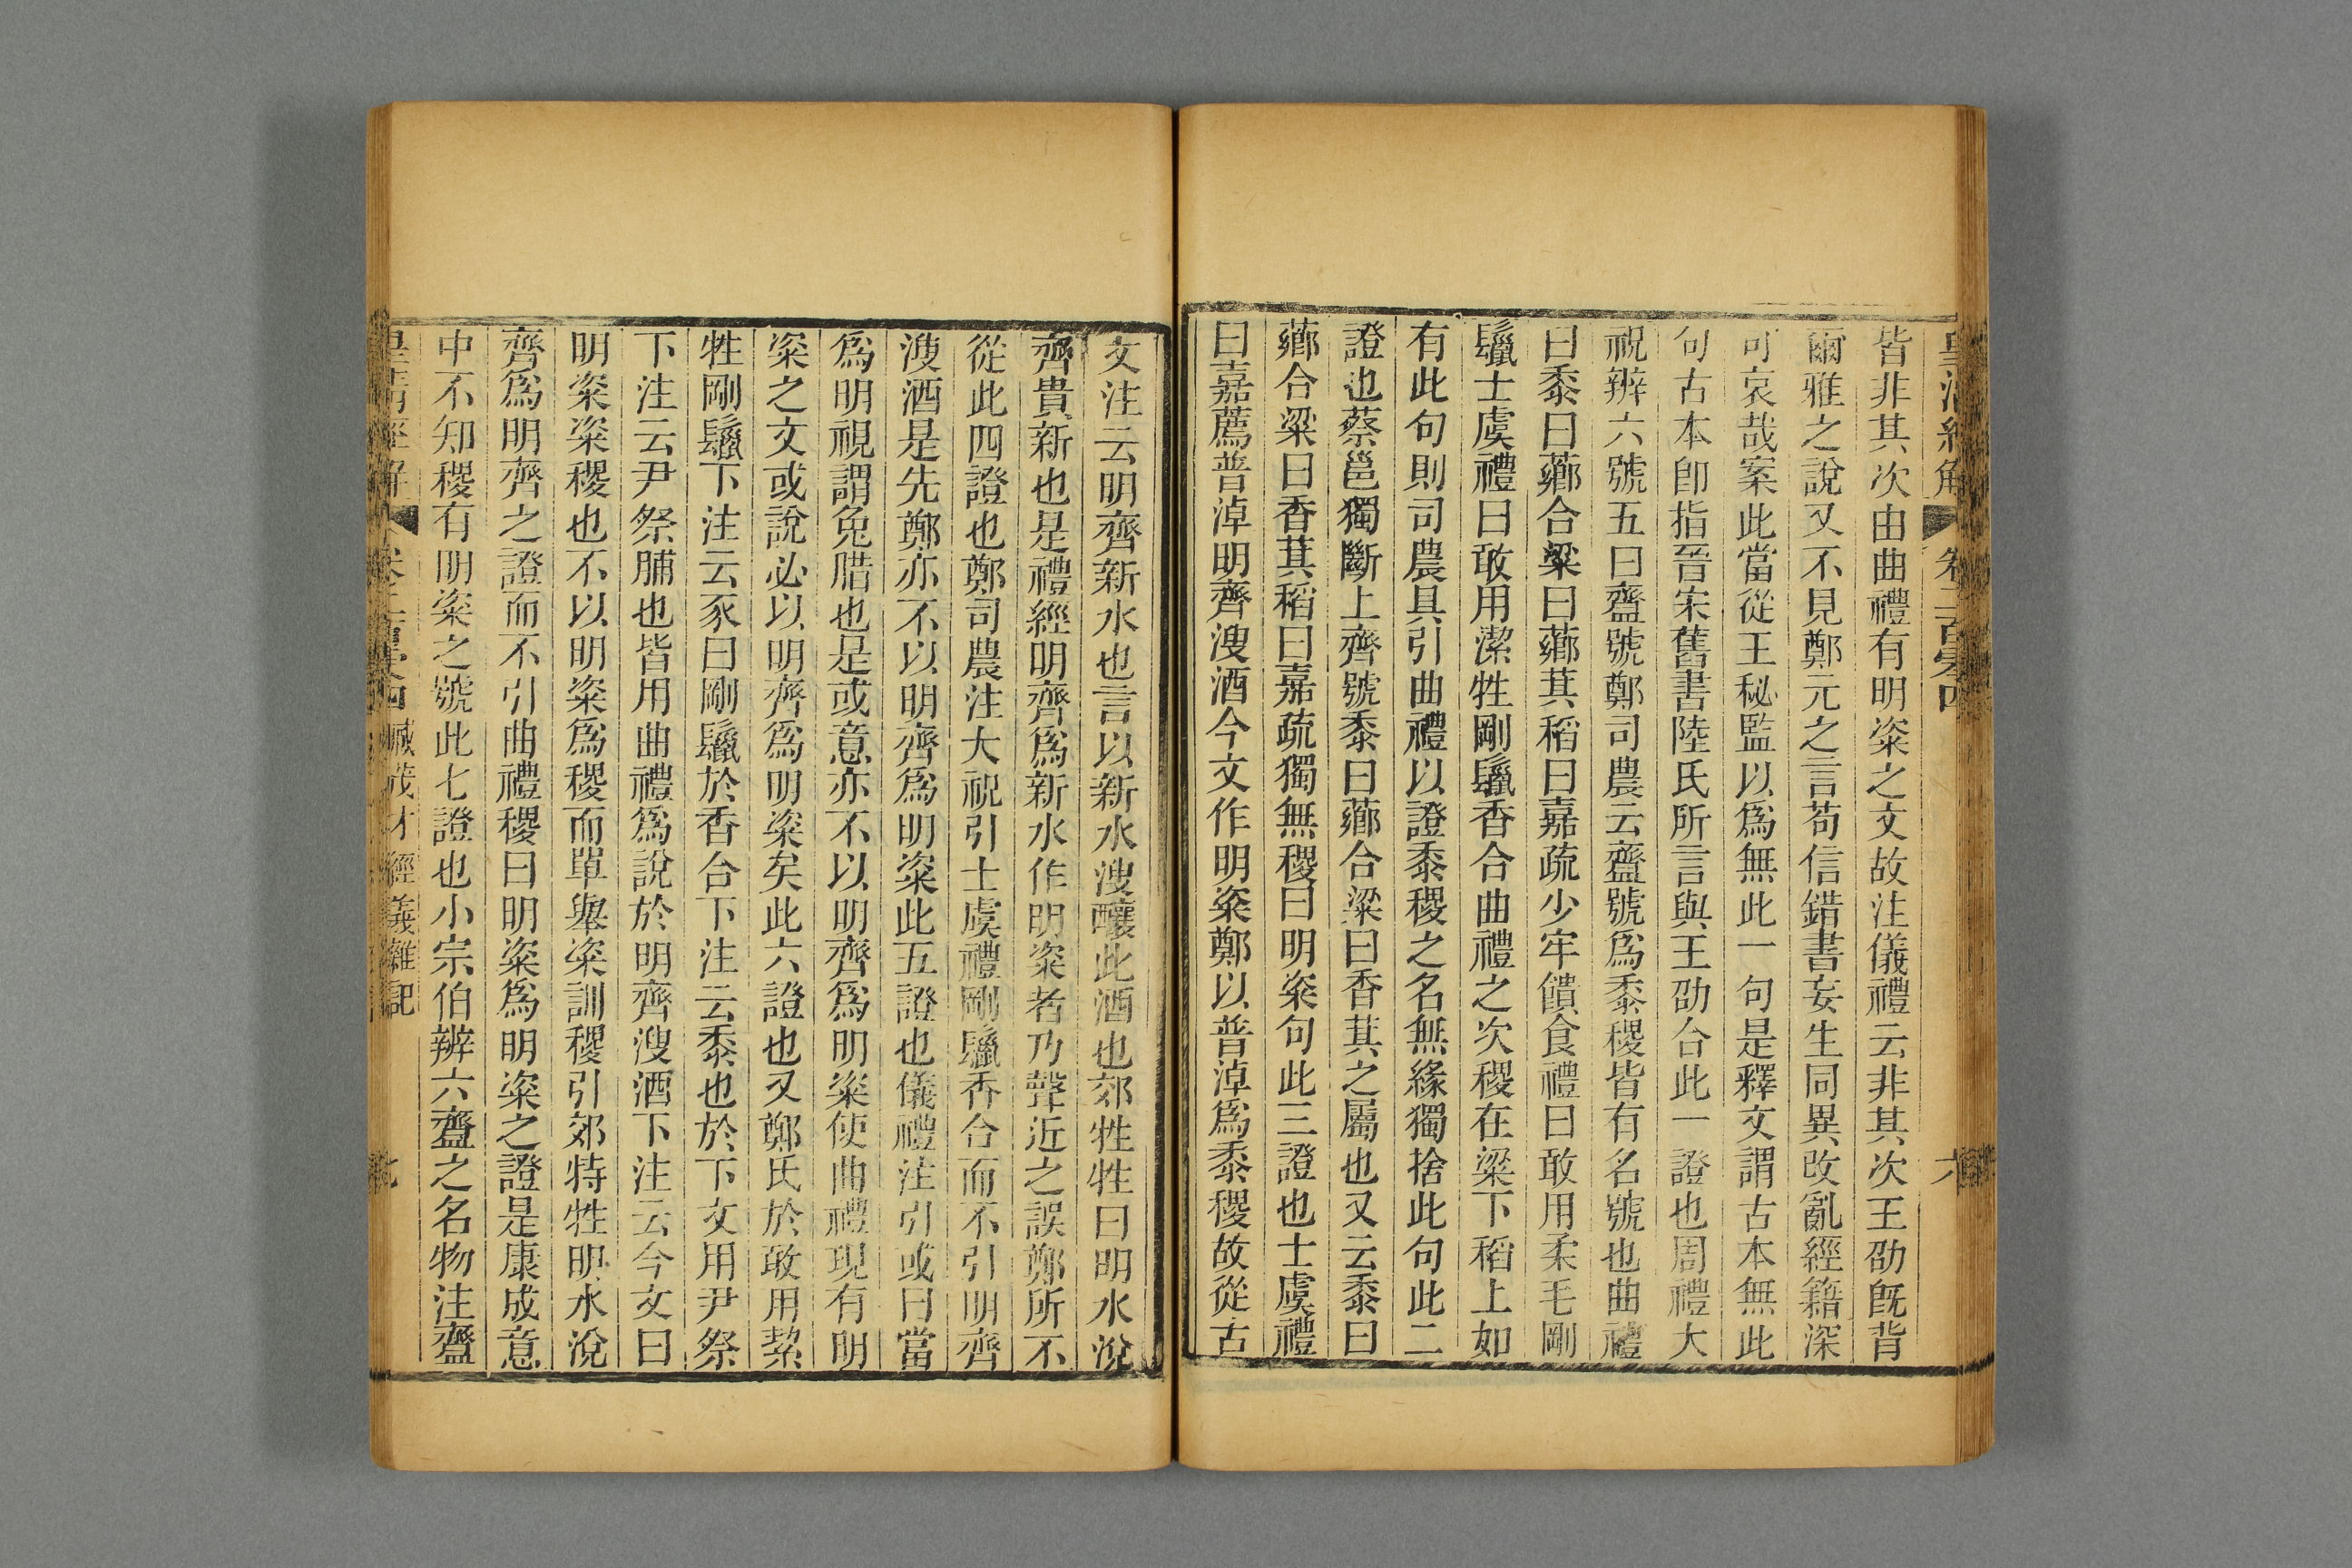 皇清經解 卷二百四 六
皆非其次由曲禮有明粢之文故注儀禮云非其次王劭旣背
爾雅之說又不見鄭元之言苟信錯書妄生同異改亂經籍深
可哀哉案此當從王秘監以爲無此一句是釋文謂古本無此
句古本卽指晉宋舊書陸氏所言與王劭合此一證也周禮大
祝辨六號五曰齍號鄭司農云齍號爲黍稷皆有名號也曲禮
曰黍曰薌合粱曰薌萁稻曰嘉疏少牢饋食禮曰敢用柔毛剛
鬣士虞禮曰敢用潔牲剛鬣香合曲禮之次稷在粱下稻上如
有此句則司農具引曲禮以證黍稷之名無緣獨捨此句此二
證也蔡邕獨斷上齊號黍曰薌合粱曰香萁之屬也又云黍曰
薌合粱曰香萁稻曰嘉疏獨無稷曰明粢句此三證也士虞禮
曰嘉薦普淖明齊溲酒今文作明粢鄭以普淖爲黍稷故從古
文注云明齊新水也言以新水溲釀此酒也郊牲牲曰明水涗
齊貴新也是禮經明齊爲新水作明粢者乃聲近之誤鄭所不
從此四證也鄭司農注大祝引士虞禮剛鬣香合而不引明齊
溲酒是先鄭亦不以明齊爲明粢此五證也儀禮注引或曰當
爲明視謂兔腊也是或意亦不以明齊爲明粢使曲禮現有明
粢之文或說必以明齊爲明粢矣此六證也又鄭氏於敢用絜
牲剛鬣下注云豕曰剛鬣於香合下注云黍也於下文用尹祭
下注云尹祭脯也皆用曲禮爲說於明齊溲酒下注云今文曰
明粢粢稷也不以明粢爲稷而單舉粢訓稷引郊特牲明水涗
齊爲明齊之證而不引曲禮稷曰明粢爲明粢之證是康成意
中不知稷有明粢之號此七證也小宗伯辨六齍之名物注齍
皇清經解 卷二百四 臧茂才經義雜記 七